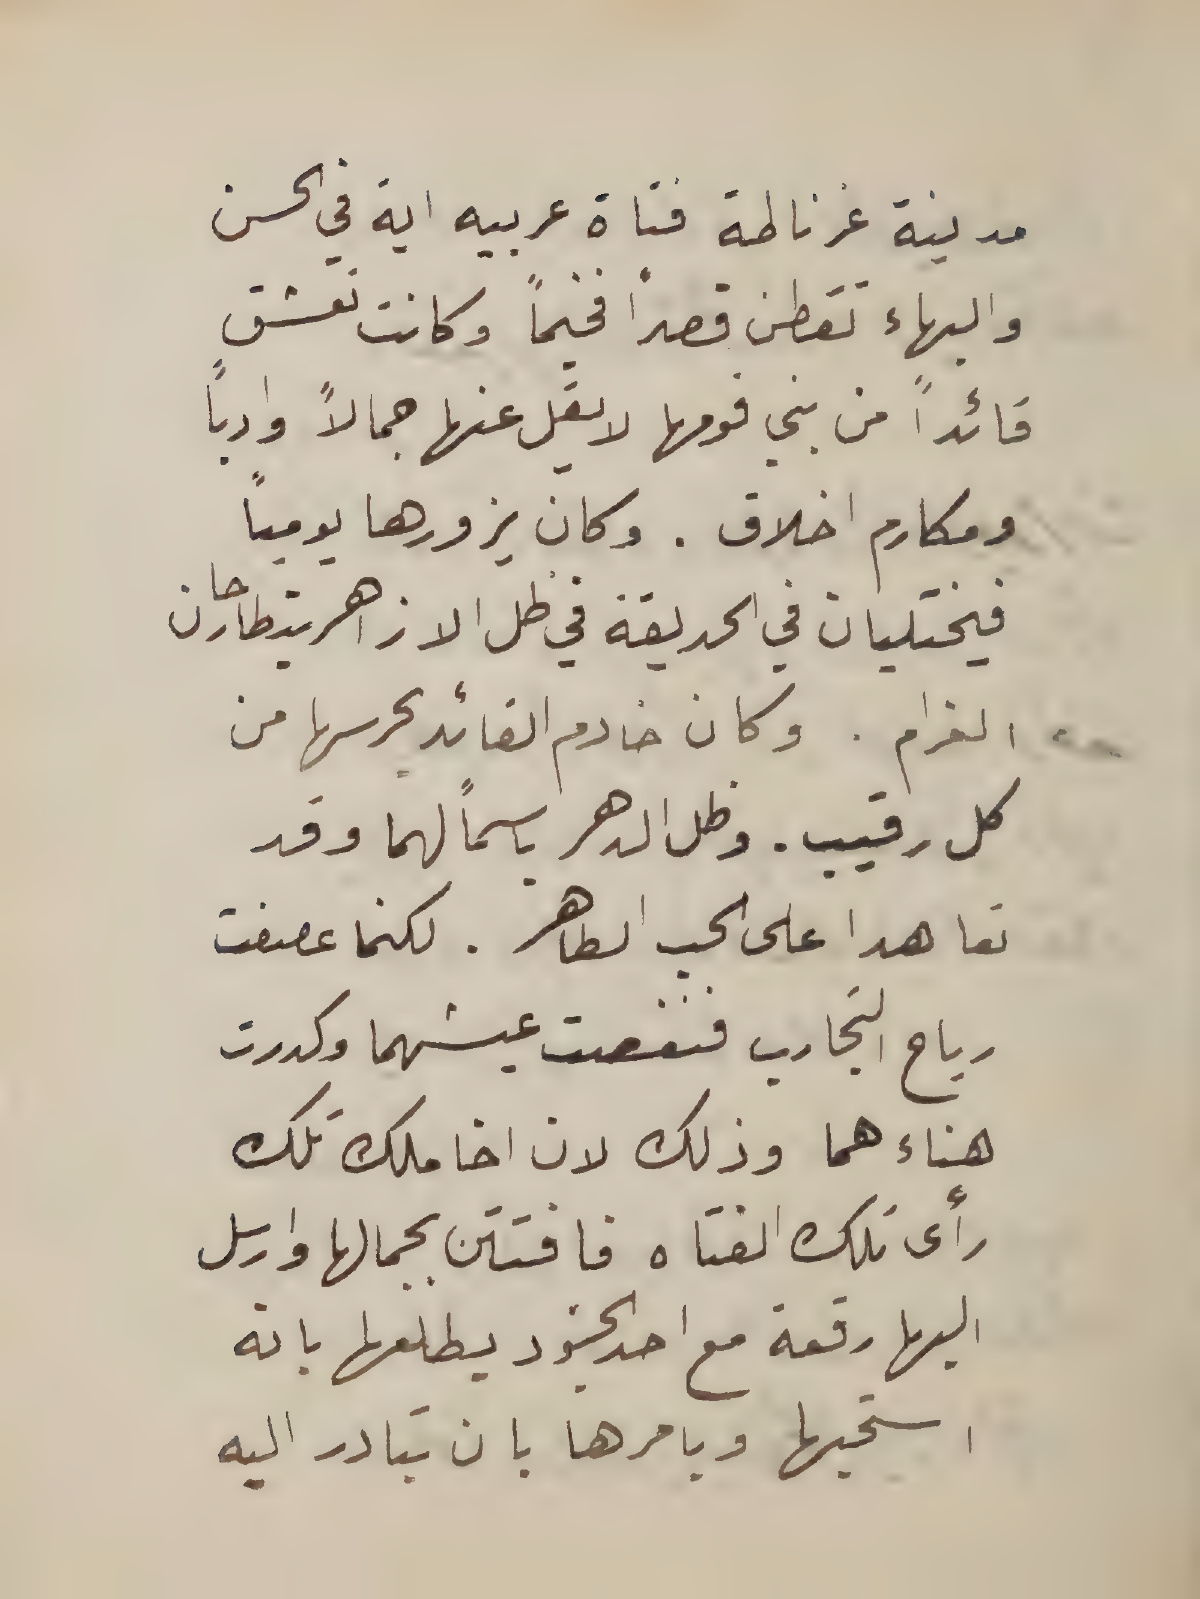 مدينة غرناطة فتاة عربيه اية في الحسن
والبهاء تقطن قصراً فخيماً وكانت تعشق
قائداً من بني قومها لا يقل عنها جمالاً وادباً
ومكارم اخلاق . وكان يزورها يومياً
فيختليان في الحديقة في ظل الازاهر يتطارحان
الغرام . وكان خادم القائد يحرسها من
كل رقيب . وظل الدهر باسماً لهما وقد
تعاهدا على الحب الطاهر . لكنما عصفت
رياح التجارب فنغصت عيشهما وكدرت
هناءهما وذلك لان اخا ملك تلك
رأى تلك الفتاه فافتتن بجمالها وارسل
اليها رقعة مع احد الجنود يطلعها بانه
استحبها ويامرها بان تبادر اليه